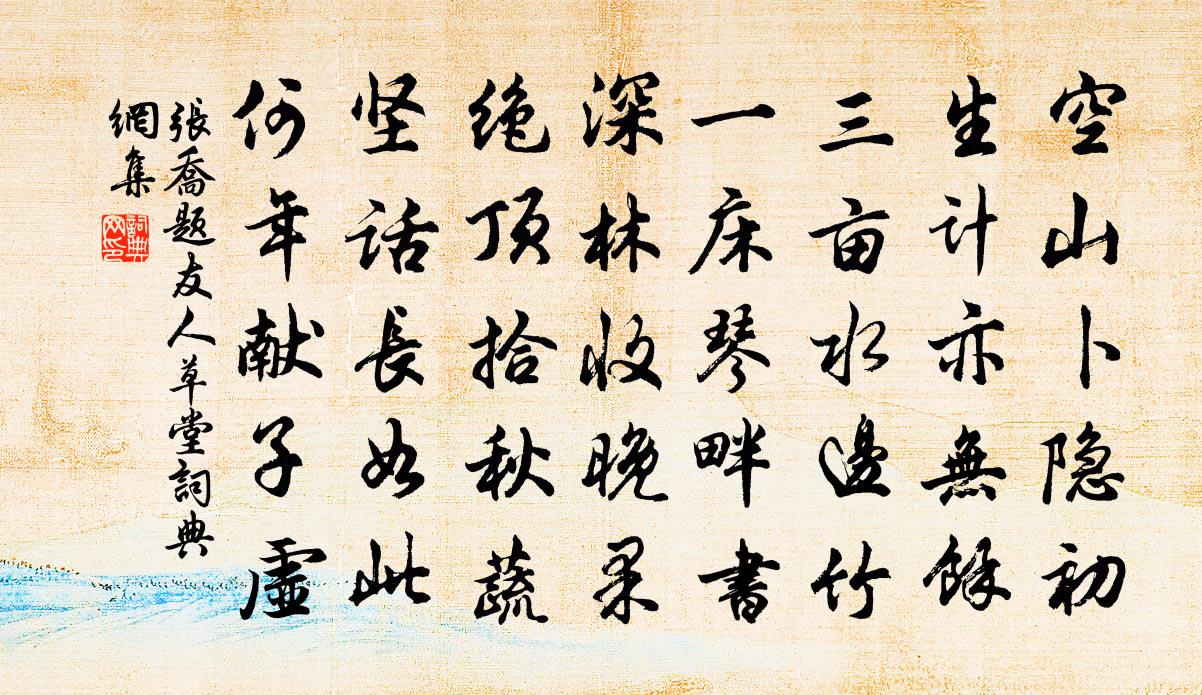 空山卜隐初
生计亦無餘
三亩水邊竹
一床琴畔書
深林收晚果
绝顶拾秋蔬
坚话長如此
何年献子虛
張喬題友人草堂詞典
網集
詞典
网印